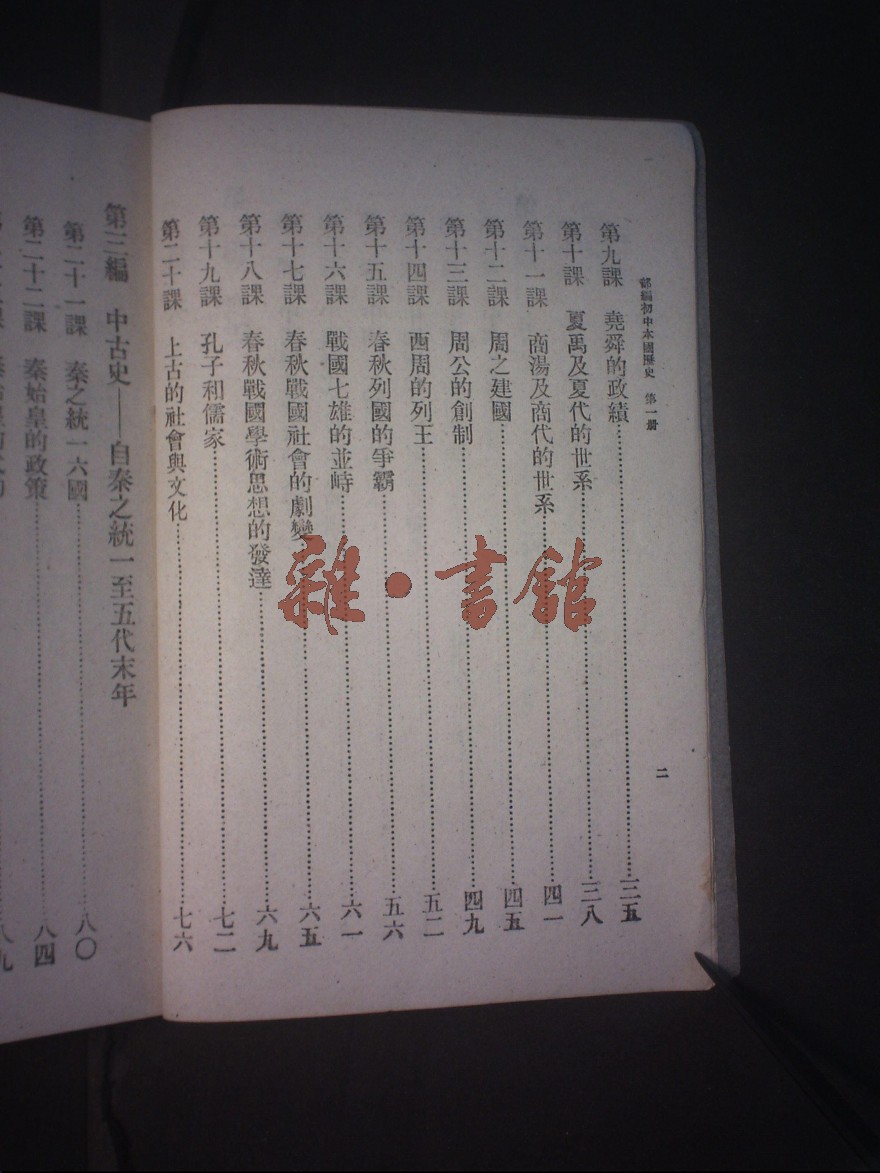 部編初中本國歷史 第一册
二
第九課 堯舜的政績……三五
第十課 夏禹及夏代的世系……三八
第十一課 商湯及商代的世系……四一
第十二課 周之建國……四五
第十三課 周公的創制……四九
第十四課 西周的列王……五二
第十五課 春秋列國的爭霸……五六
第十六課 戰國七雄的並峙……六一
第十七課 春秋戰國社會的劇變……六五
第十八課 春秋戰國學術思想的發達……六九
第十九課 孔子和儒家……七二
第二十課 上古的社會與文化……七六
第三編 中古史——自秦之統一至五代末年
第二十一課 秦之統一六國……八〇
第二十二課 秦始皇的政策……八四
八九
雜·書館